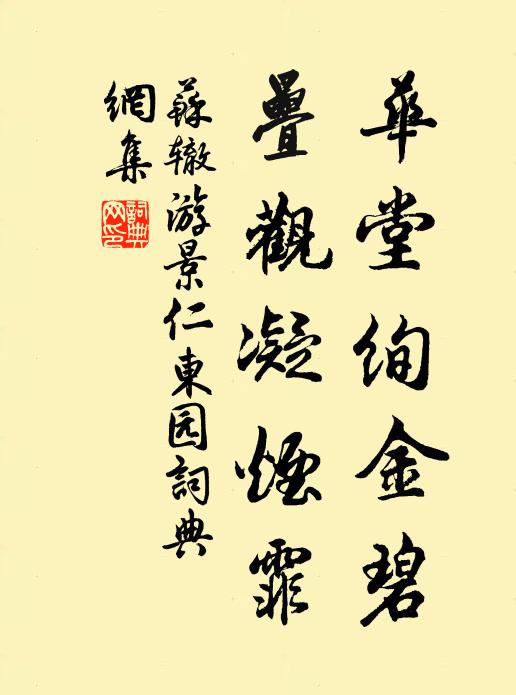 華堂絢金碧
疊觀凝煙霏
蘇辙游景仁東园詞典
網集
詞典网印